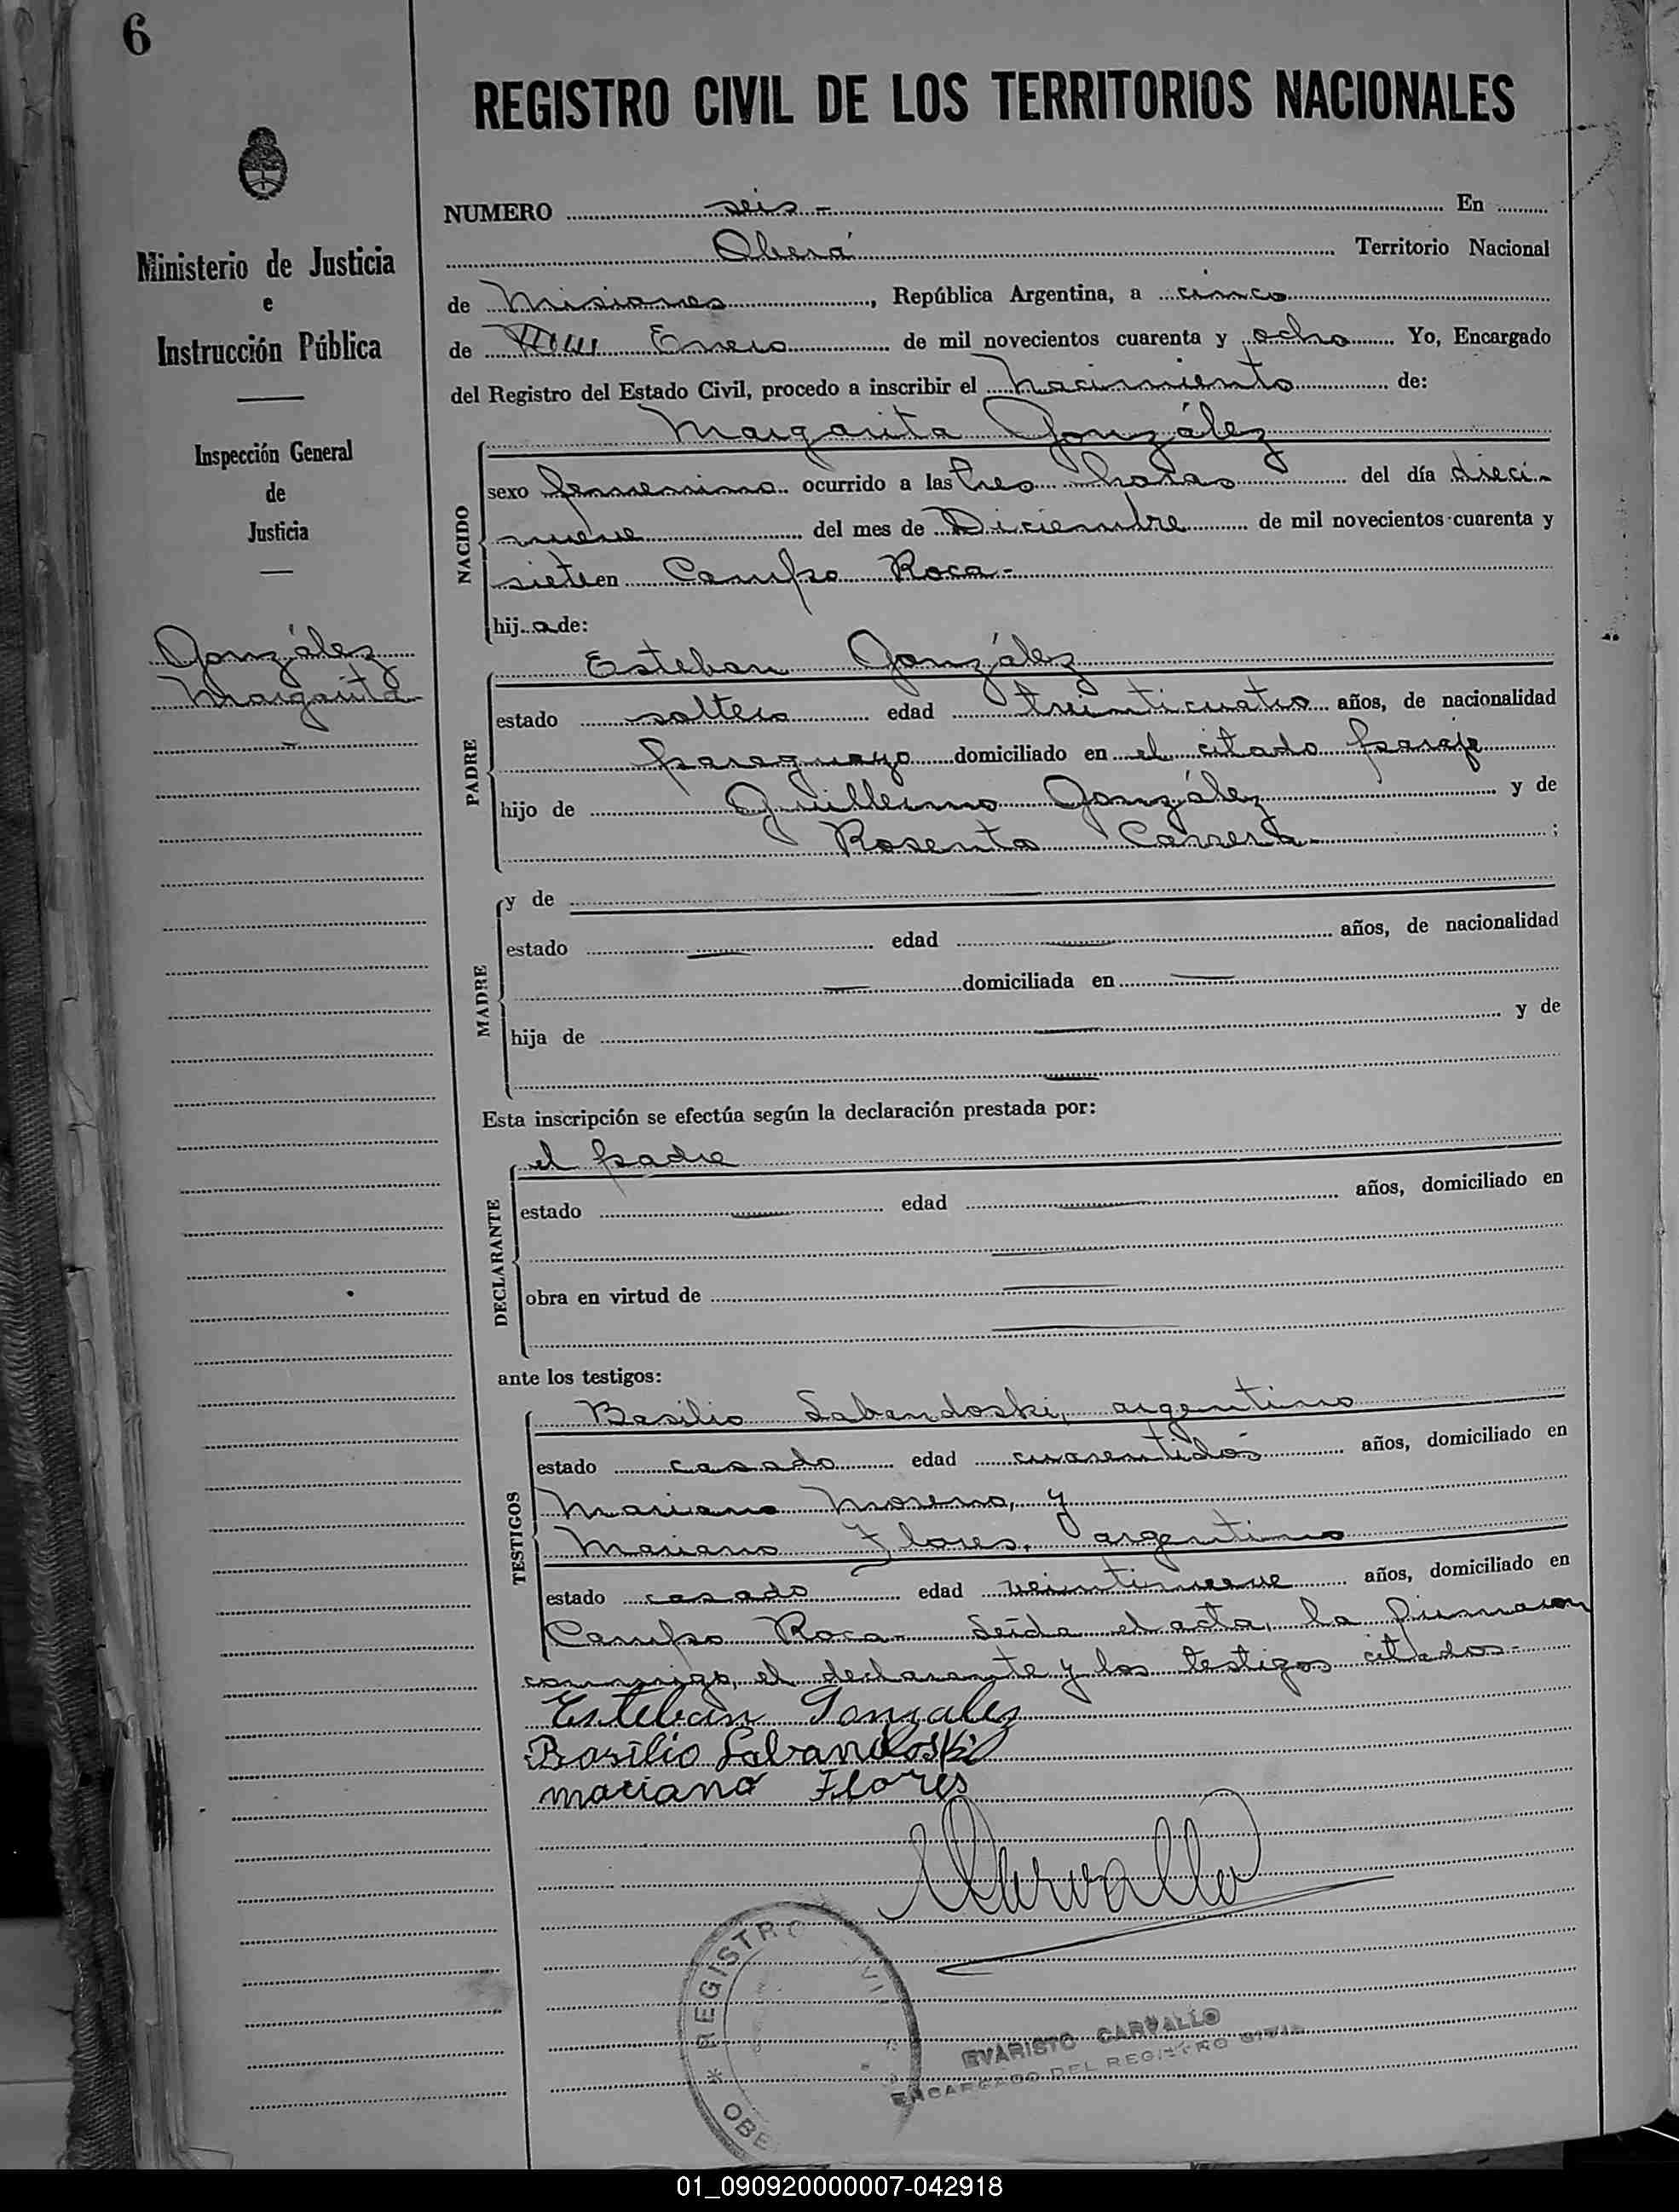 6
REGISTRO CIVIL DE LOS TERRITORIOS NACIONALES
Ministerio de Justicia
e
Instrucción Pública
Inspección General
de
Justicia
González
Margarita
NUMERO seis.- En
Oberá Territorio Nacional
de Misiones, República Argentina, a cinco
de Enero de mil novecientos cuarenta y ocho Yo, Encargado
del Registro del Estado Civil, procedo a inscribir el nacimiento de:
Margarita González
NACIDO
sexo femenino ocurrido a las tres horas del día dieci-
nueve del mes de Diciembre de mil novecientos cuarenta y
siete en Campo Roca.-
hija de:
Esteban González
PADRE
estado soltero edad treinticuatro años, de nacionalidad
paraguayo domiciliado en el citado paraje
hijo de Guillermo González y de
Rosenta ;
MADRE
y de —
estado — edad — años, de nacionalidad
— domiciliada en —
hija de — y de
—
Esta inscripción se efectúa según la declaración prestada por:
el padre
DECLARANTE
estado — edad — años, domiciliado en
—
obra en virtud de —
—
ante los testigos:
Basilio Sabandoski, argentino
TESTIGOS
estado casado edad cuarentidós años, domiciliado en
Mariano Moreno, y
Mariano Flores, argentino
estado casado edad veintinueve años, domiciliado en
Campo Roca.- Leída el acta, la firmaron
conmigo, el declarante y los testigos citados.-
Esteban Gonzalez
Basilio Sabandoski
mariano Flores
Carvallo
REGISTRO
OBE
EVARISTO CARVALLO
ENCARGADO DEL REGISTRO CIVIL
01_090920000007-042918